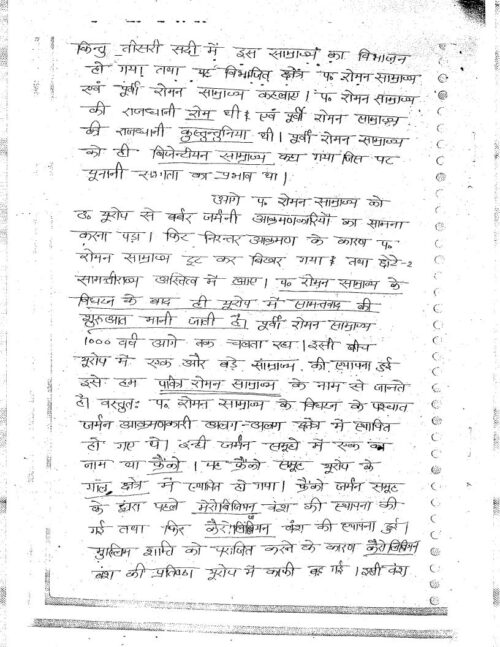 किन्तु तीसरी सदी में इस साम्राज्य का विभाजन
हो गया। तथा यह विभाजित क्षेत्र प० रोमन साम्राज्य
एवं पूर्वी रोमन साम्राज्य कहलाए। प० रोमन साम्राज्य
की राजधानी रोम थी एवं पूर्वी रोमन साम्राज्य
की राजधानी कुस्तुन्तुनिया थी। पूर्वी रोमन साम्राज्य
को ही बिजेन्टीयन साम्राज्य कहा गया जिस पर
यूनानी सभ्यता का प्रभाव था।
आगे प० रोमन साम्राज्य को
उ० यूरोप से बर्बर जर्मनी आक्रमणकारियों का सामना
करना पड़ा। फिर निरन्तर आक्रमण के कारण प०
रोमन साम्राज्य टूट कर बिखर गया तथा छोटे-2
सामन्तीराज्य अस्तित्व में आए। प० रोमन साम्राज्य के
विघटन के बाद ही यूरोप में सामन्तवाद की
शुरुआत मानी जाती है। पूर्वी रोमन साम्राज्य
1000 वर्ष आगे तक चलता रहा। इसी बीच
यूरोप में एक और बड़े साम्राज्य की स्थापना हुई
इसे हम पवित्र रोमन साम्राज्य के नाम से जानते
है। वस्तुतः प० रोमन साम्राज्य के विघटन के पश्चात
जर्मन आक्रमणकारी अलग-अलग क्षेत्र में स्थापित
हो गए थे। इन्ही जर्मन समूहों में एक का
नाम था फ्रैंको। यह फ्रैंको समूह यूरोप के
गॉल क्षेत्र में स्थापित हो गया। फ्रैंको जर्मन समूह
के द्वारा पहले मेरोविंजियन वंश की स्थापना की
गई तथा फिर कैरोलिंजियन वंश की स्थापना हुई।
मुस्लिम शक्ति को पराजित करने के कारण कैरोलिंजियन
वंश की प्रतिष्ठा यूरोप में काफी बढ़ गई। इसी वंश